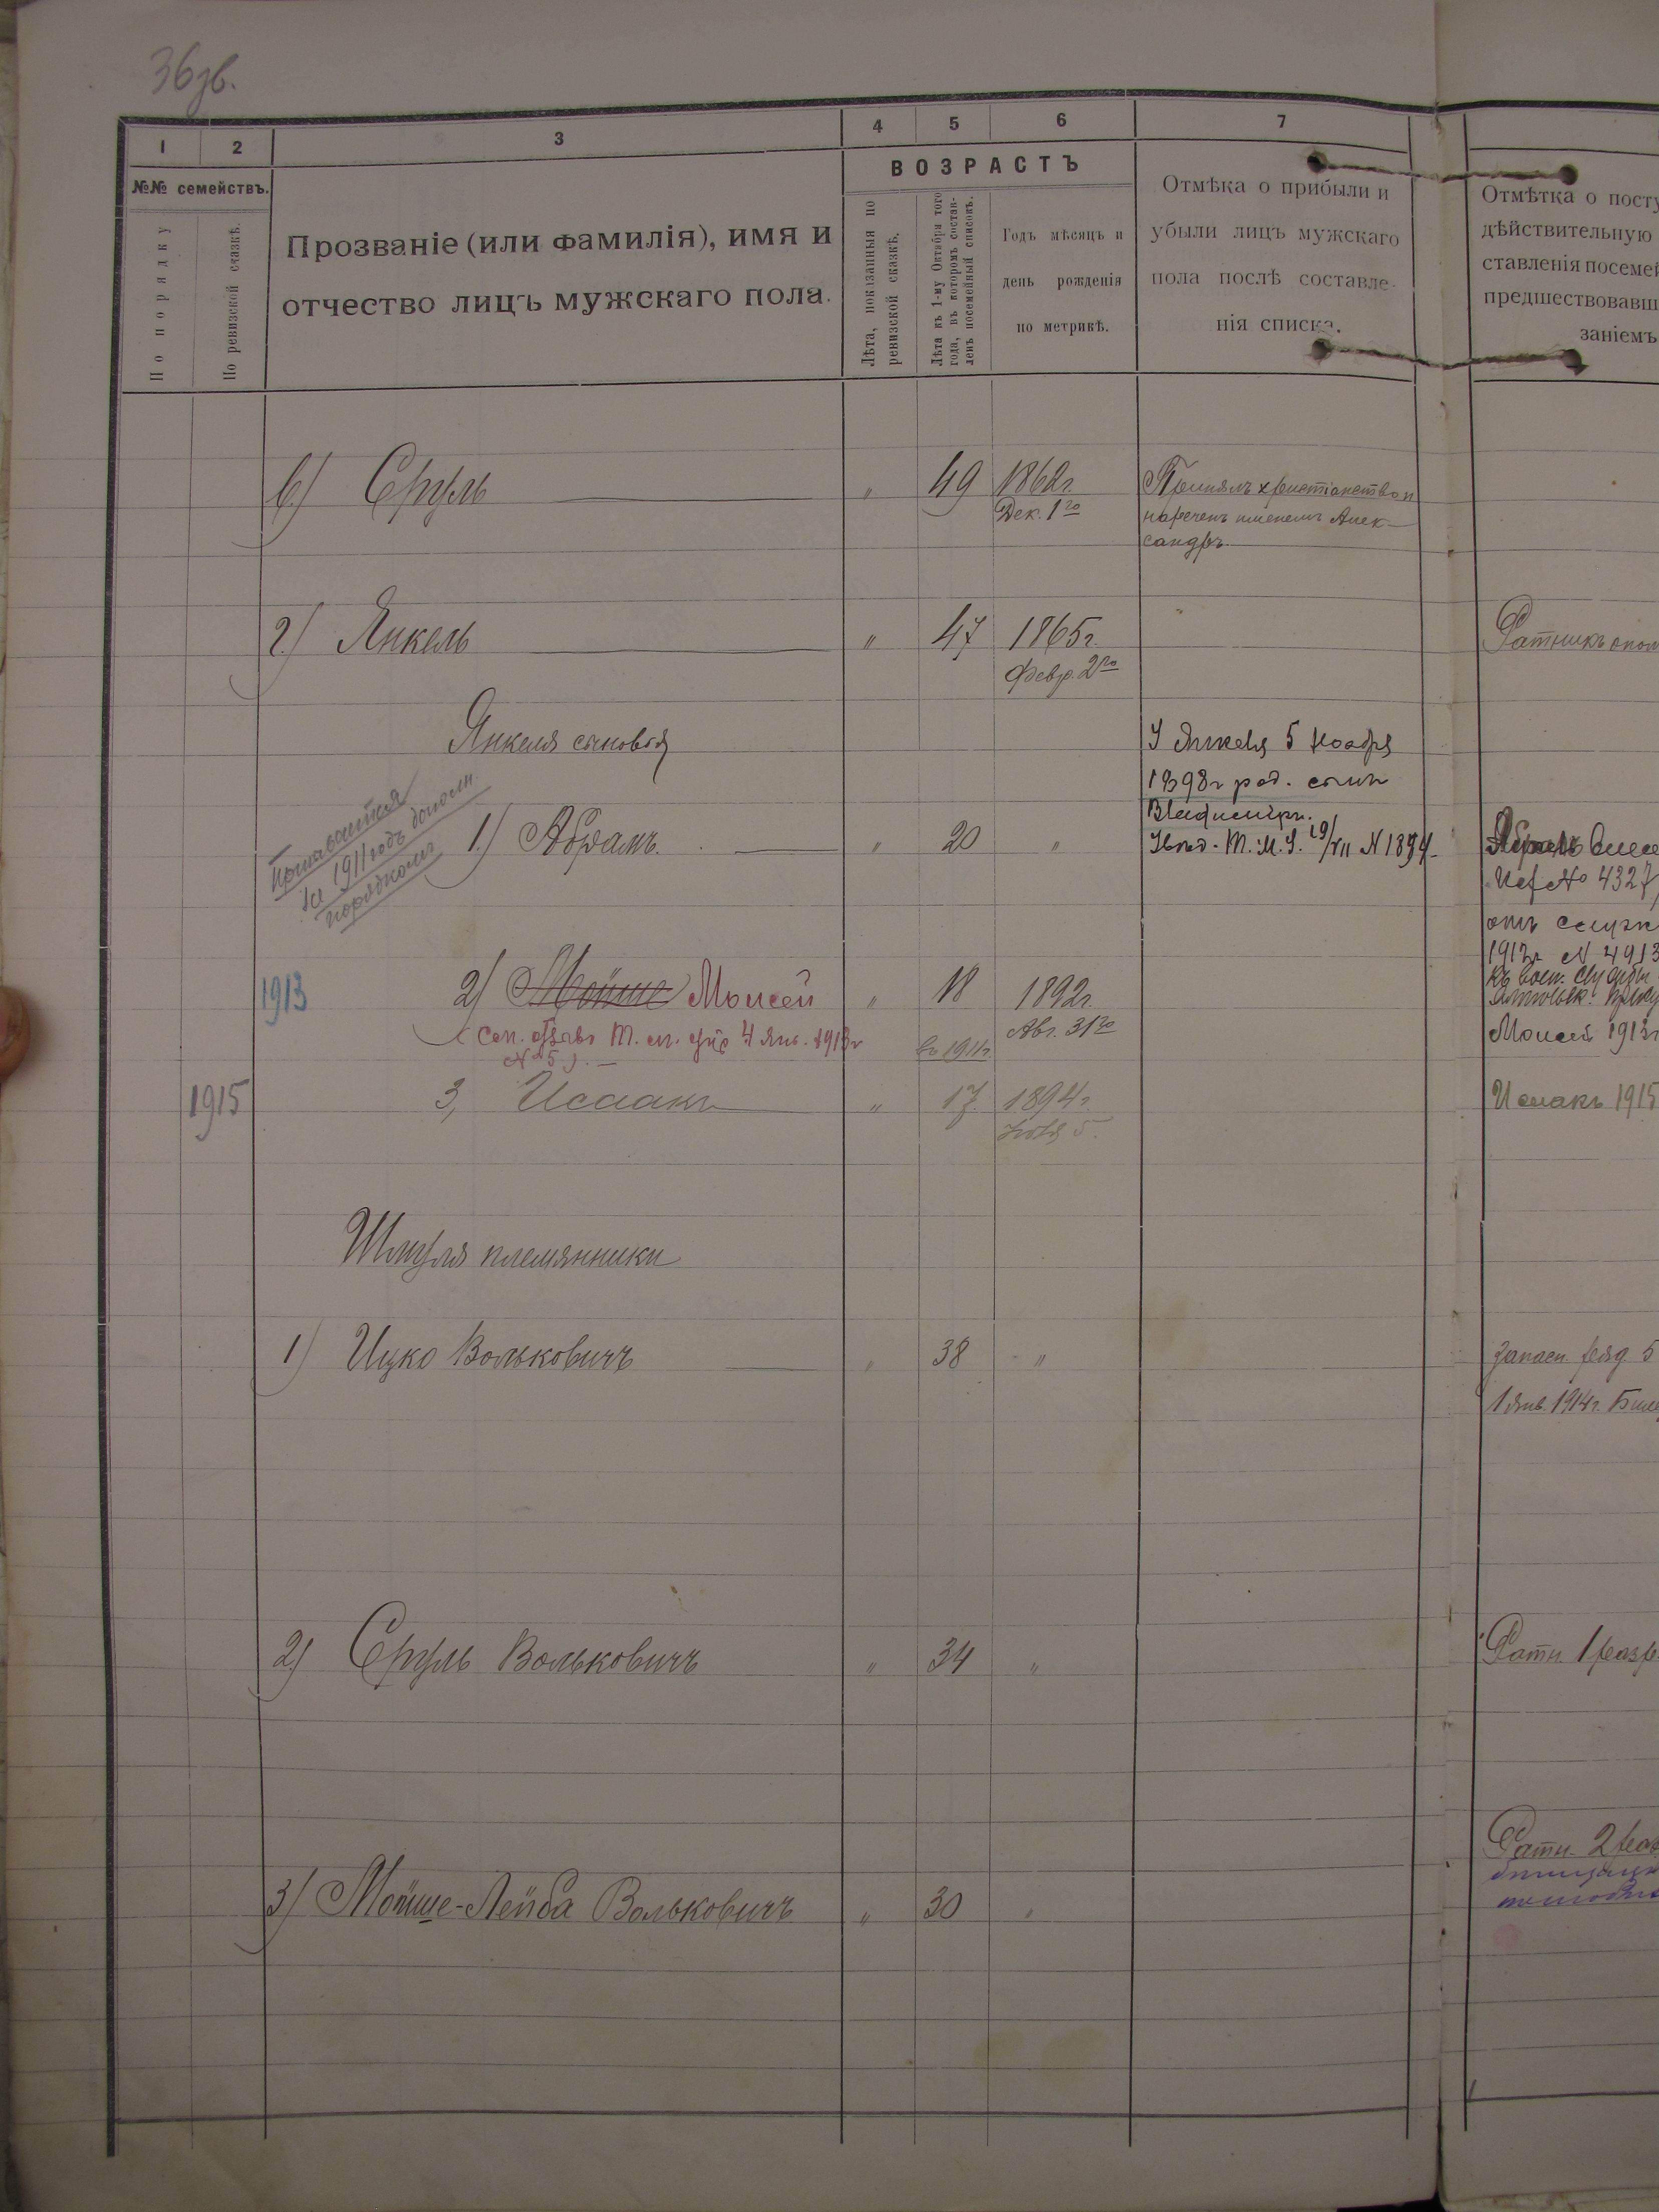 36зв.
1
2
3
4
5
6
7
№№ семействъ.
По порядку
По ревизской сказкѣ.
Прозваніе (или фамилія), имя и
отчество лицъ мужскаго пола.
ВОЗРАСТЪ
Лѣта, показанныя по
ревизской сказкѣ.
Лѣта къ 1-му Октября того
года, въ которомъ состав-
ленъ посемейный списокъ.
Годъ мѣсяцъ и
день рожденія
по метрикѣ.
Отмѣка о прибыли и
убыли лицъ мужскаго
пола послѣ составле-
нія списка.
Отмѣтка о посту
дѣйствительную
ставленія посемей
предшествовавш
заніемъ
в.) Сруль " 49 1862г.
Дек. 1го
Принялъ христіанство и
нареченъ именемъ Алек-
сандръ.
г.) Янкель " 47 1865г.
Февр. 2го
Ратникъ опол
Янкеля сыновья
У Янкеля 5 Ноября
1898г род. сынъ
Владиміръ.
М. У. 19/VII N 1894
Призывается
на 1911 годъ дополн.
порядкомъ
1.) Абрамъ. " 20 "
Абрамъ
N 4327
1912г N 4913
1913
2) Мойше Моисей " 18 1892г.
Авг. 31го
въ 1911г.
4 Янв. 1913г
N 5).
Моисей 1913г
1915
3, Исаакъ " 17. 1894г.
Ноя 5.
Исаакъ 1915
Шмуля племянники
1) Ицко Вольковичъ " 38 "
Запасн. ряд. 5
1 Янв. 1914г. Биле
2) Сруль Вольковичъ " 34 "
Ратн. 1 разр
3) Мойше-Лейба Вольковичъ " 30 "
Ратн. 2 раз